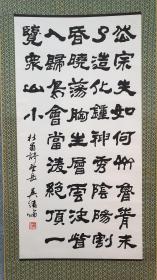 岱宗夫如何齊魯青未
了造化鍾神秀陰陽割
昏曉蕩胸生層雲決眥
入歸鳥會當凌絕頂一
覽衆山小
杜甫詩望岳 吳